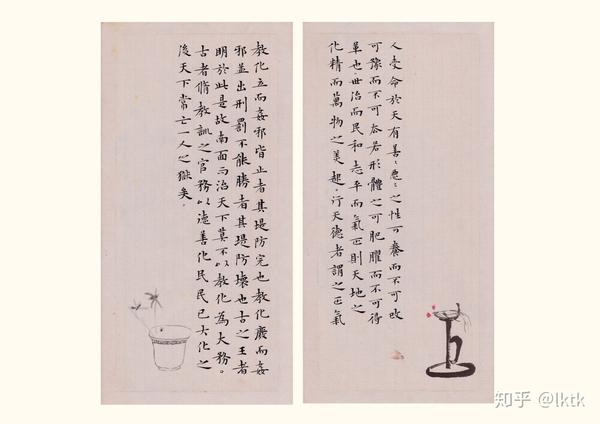 人受命於天有善〻惡〻之性可養而不可改
可豫而不可去若形體之可肥臞而不可得
革也世治而民和志平而氣正則天地之
化精而萬物之美起行天德者謂之正氣
教化立而姦邪皆止者其堤防完也教化廢而姦
邪並出刑罰不能勝者其堤防壞也古之王者
明於此是故南面而治天下莫不以教化為大務。
古者脩教訓之官務以德善化民民已大化之
後天下常亡一人之獄矣。
知乎 @lktk